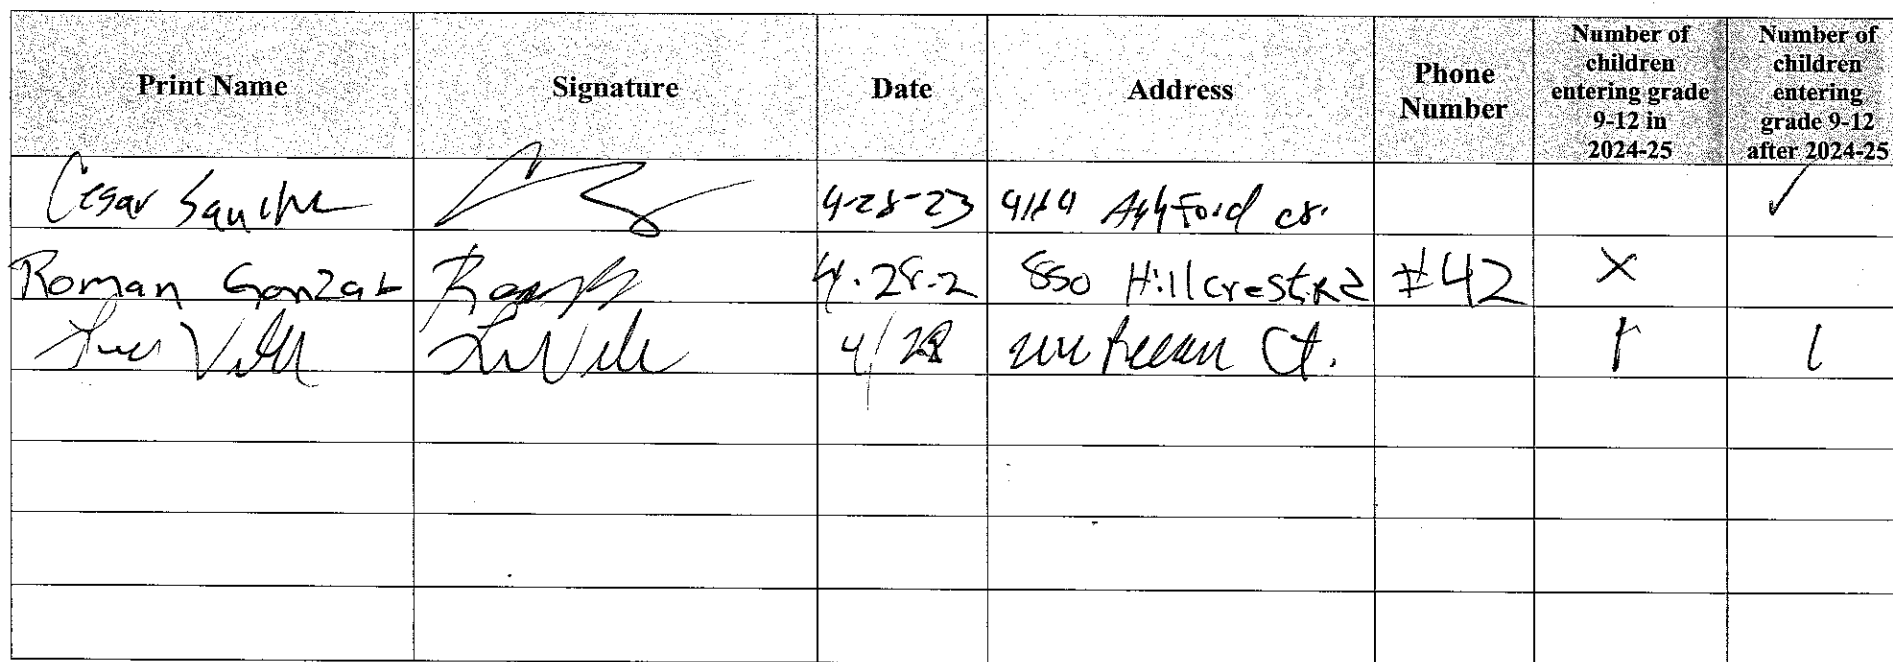 Print Name Signature Date Address Phone Number Number of children entering grade 9-12 in 2024-25 Number of children entering grade 9-12 after 2024-25
Cesar 4-28-23 Ashford ✓
Roman 4.28.2 850 Hillcrest Rd #42 X
4/28 Ct. 1 1